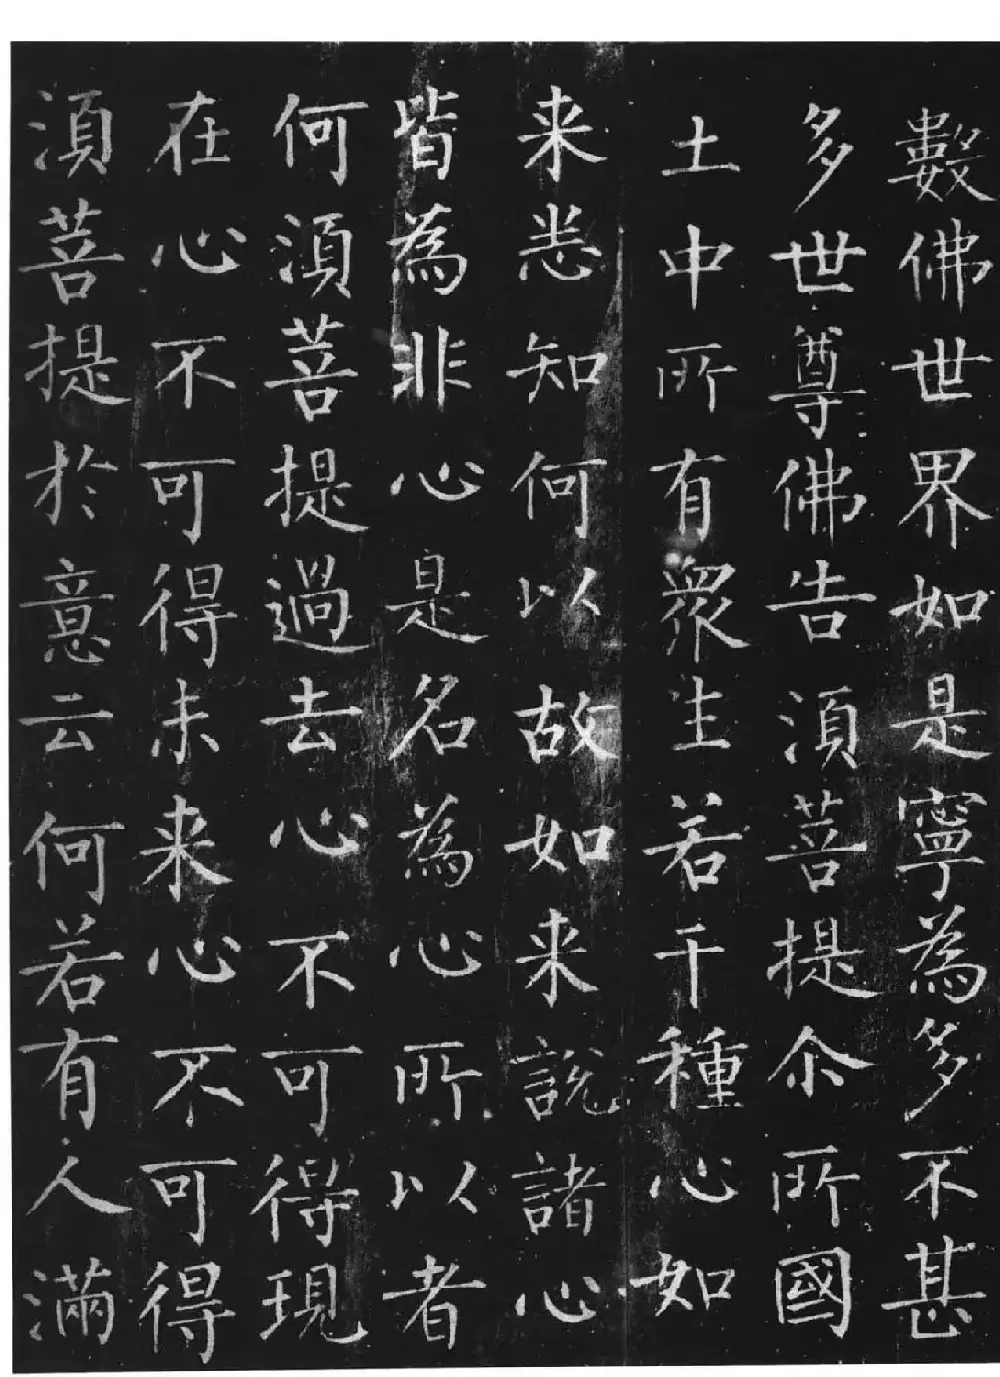 數佛世界如是寧為多不甚
多世尊佛告湏菩提尒所國
土中所有眾生若干種心如
来悉知何以故如来說諸心
皆為非心是名為心所以者
何湏菩提過去心不可得現
在心不可得未来心不可得
湏菩提於意云何若有人滿